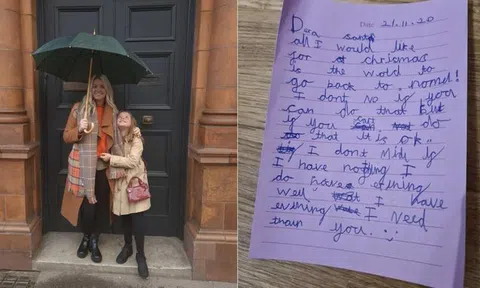 Date: 21.11.20
Dea santa
all I would like
for chrismas
is the wold to
go back to nomel!
I dont no if you
can do that but
if you cant do
that it is ok
I dont Mide if
I have nothing I
do have evening
well I have
evening I Need
than you. :)